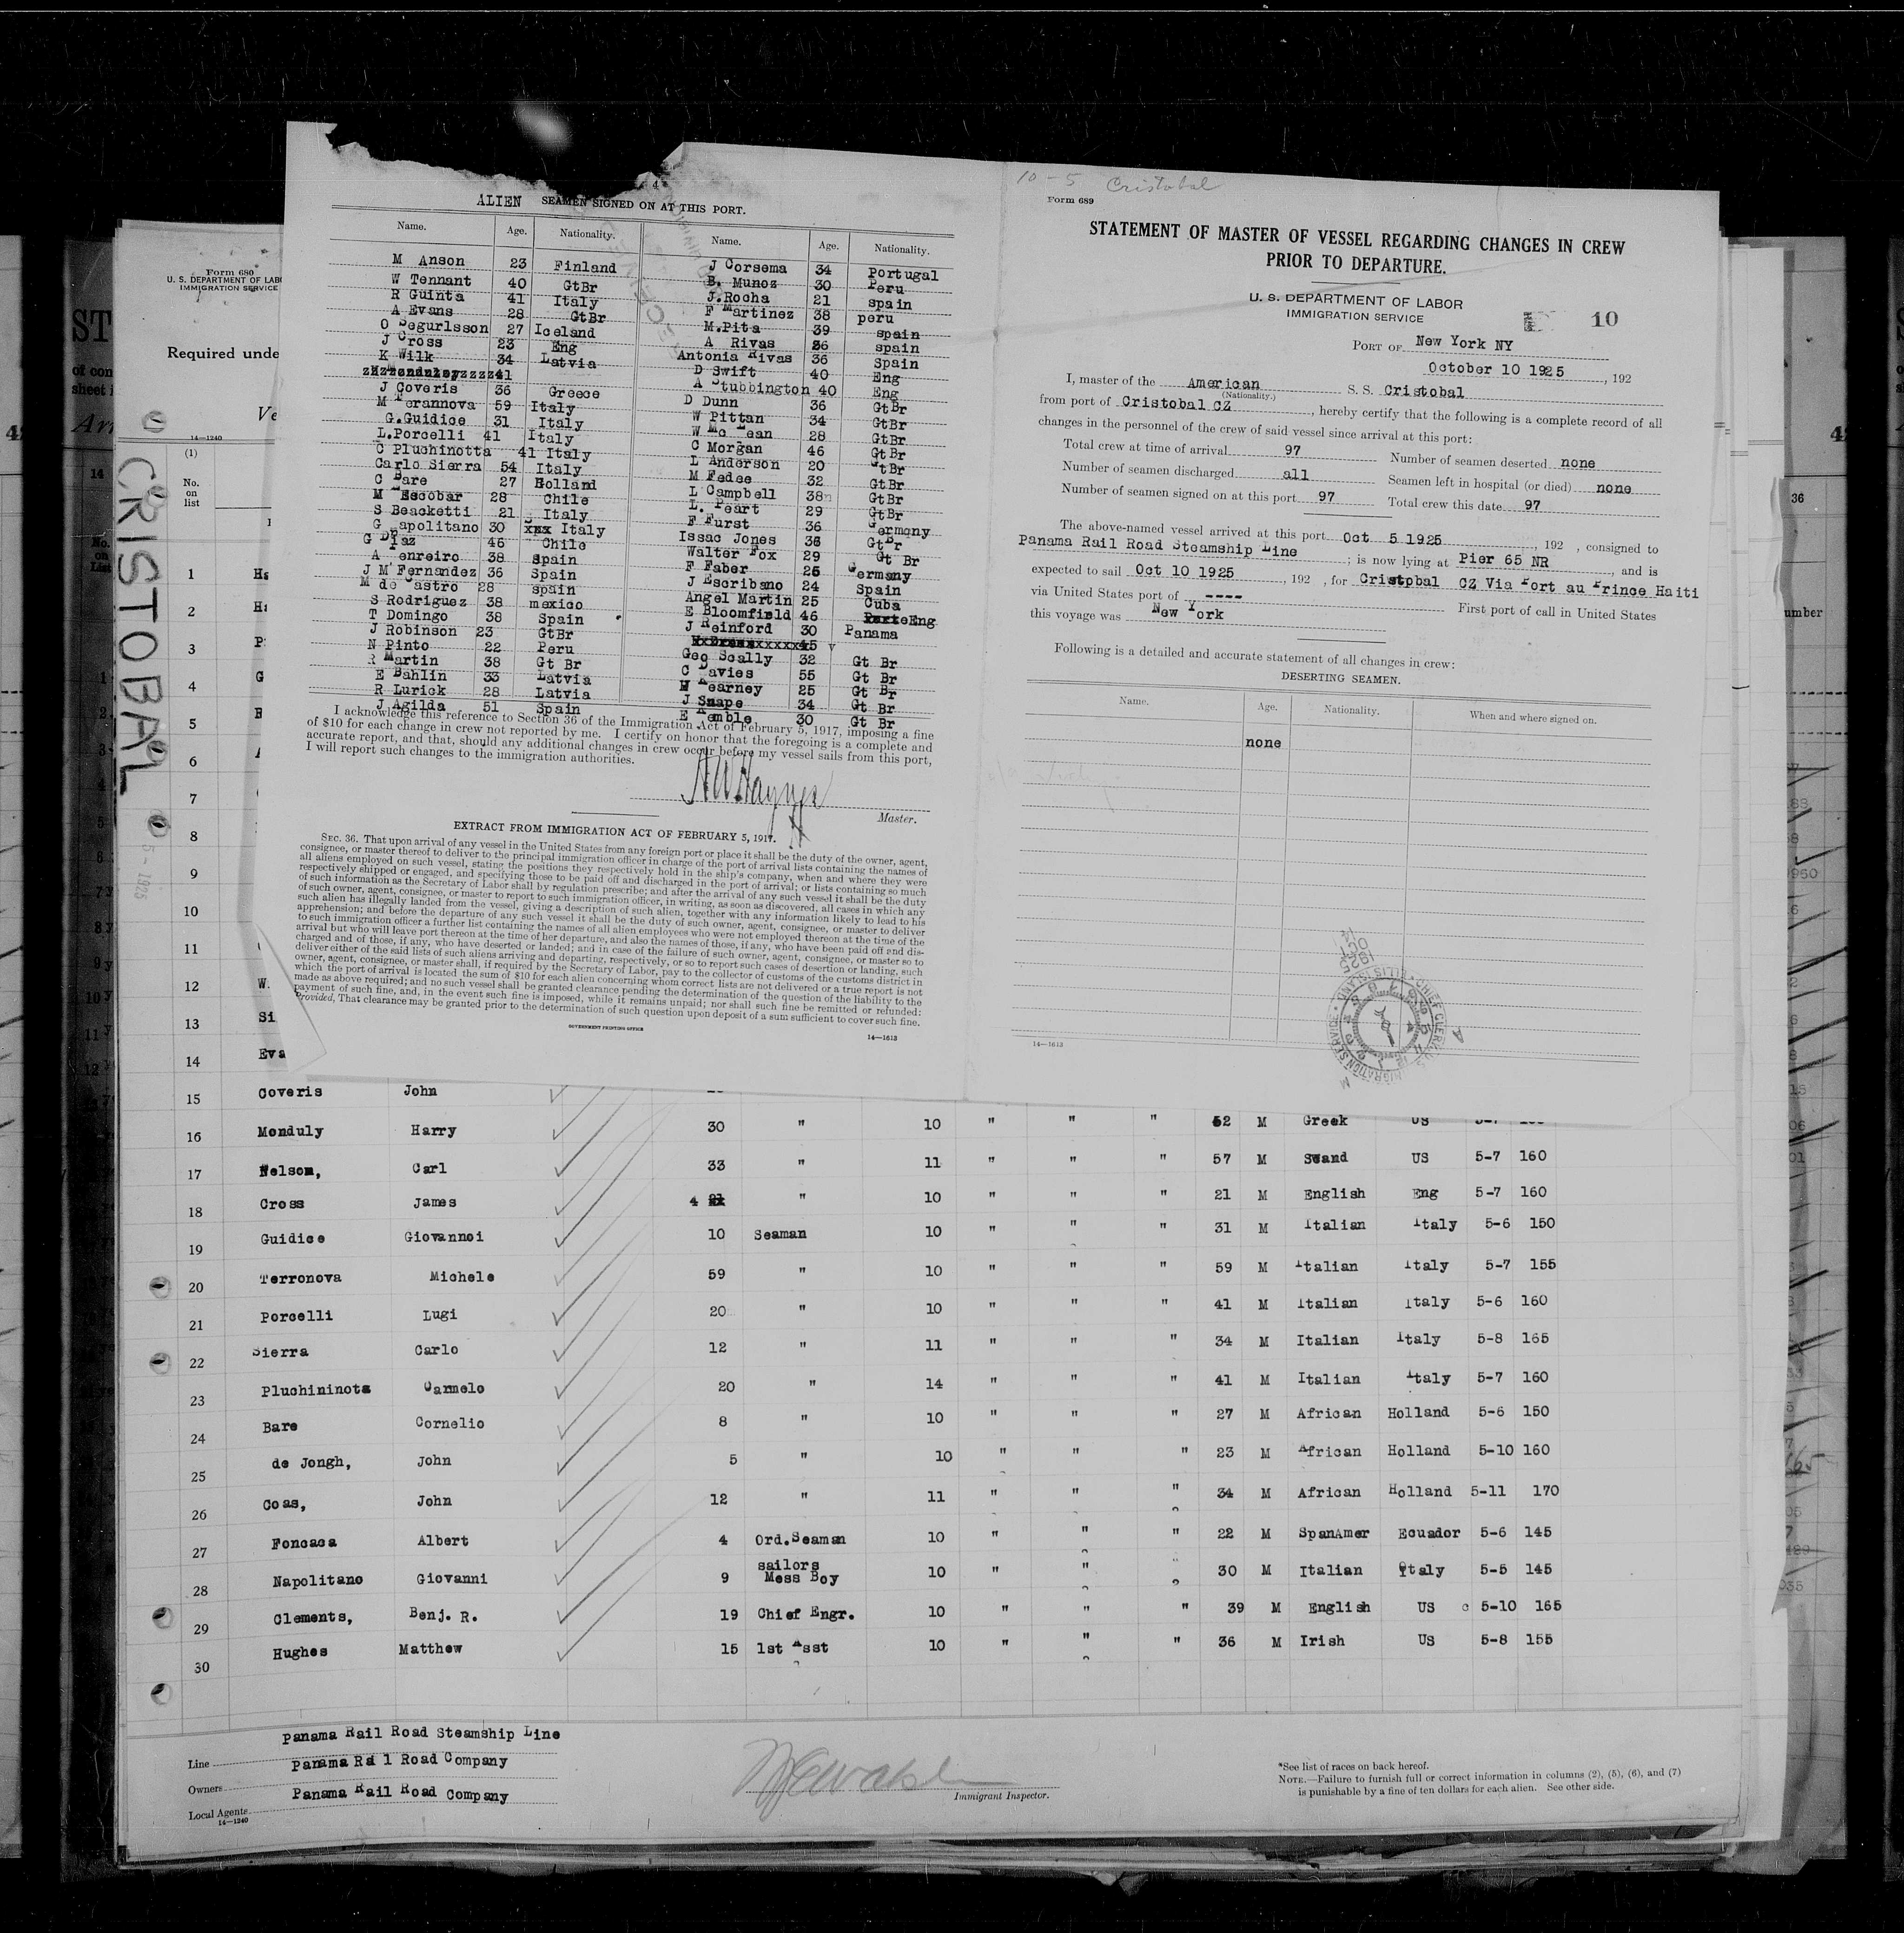 4
ALIEN SEAMEN SIGNED ON AT THIS PORT.
Name. Age. Nationality. Name. Age. Nationality.
M Anson 23 Finland J Corsema 34 Portugal
W Tennant 40 GtBr E. Munoz 30 Peru
R Guinta 41 Italy J.Rocha 21 spain
A Evans 28 GtBr F Martinez 38 peru
O Segurlsson 27 Iceland M.Pita 39 spain
J Cross 23 Eng A Rivas 36 spain
K Wilk 34 Latvia Antonia Rivas 36 Spain
41 D Swift 40 Eng
J Coveris 36 Greece A Stubbington 40 Eng
M Terannova 59 Italy D Dunn 36 GtBr
G.Guidice 31 Italy W Pittan 34 GtBr
L.Porcelli 41 Italy W Mc Lean 28 GtBr
C Pluchinotta 41 Italy C Morgan 46 GtBr
Carlo Sierra 54 Italy L Anderson 20 GtBr
C Bare 27 Holland M Fedee 32 GtBr
M Escobar 28 Chile L Campbell 38 GtBr
S Beacketti 21 Italy L. Peart 29 GtBr
G Napolitano 30 xxx Italy F Furst 36 Germany
G Diaz 46 Chile Issac Jones 36 GtBr
A Tenreiro 38 Spain Walter Fox 29 Gt Br
J M Fernandez 36 Spain F Faber 26 Germany
M de Castro 28 spain J Escribano 24 Spain
S Rodriguez 38 mexico Angel Martin 25 Cuba
T Domingo 38 Spain E Bloomfield 46 Eng
J Robinson 23 GtBr J Reinford 30 Panama
N Pinto 22 Peru 45
R Martin 38 Gt Br Geo Scally 32 Gt Br
E Bahlin 33 Latvia C Davies 55 Gt Br
R Lurick 28 Latvia M Kearney 25 Gt Br
J Agilda 51 Spain J Snape 34 Gt Br
E Kemble 30 Gt Br
I acknowledge this reference to Section 36 of the Immigration Act of February 5, 1917, imposing a fine
of $10 for each change in crew not reported by me. I certify on honor that the foregoing is a complete and
accurate report, and that, should any additional changes in crew occur before my vessel sails from this port,
I will report such changes to the immigration authorities.
Master.
EXTRACT FROM IMMIGRATION ACT OF FEBRUARY 5, 1917.
SEC. 36. That upon arrival of any vessel in the United States from any foreign port or place it shall be the duty of the owner, agent,
consignee, or master thereof to deliver to the principal immigration officer in charge of the port of arrival lists containing the names of
all aliens employed on such vessel, stating the positions they respectively hold in the ship's company, when and where they were
respectively shipped or engaged, and specifying those to be paid off and discharged in the port of arrival; or lists containing so much
of such information as the Secretary of Labor shall by regulation prescribe; and after the arrival of any such vessel it shall be the duty
of such owner, agent, consignee, or master to report to such immigration officer, in writing, as soon as discovered, all cases in which any
such alien has illegally landed from the vessel, giving a description of such alien, together with any information likely to lead to his
apprehension; and before the departure of any such vessel it shall be the duty of such owner, agent, consignee, or master to deliver
to such immigration officer a further list containing the names of all alien employees who were not employed thereon at the time of the
arrival but who will leave port thereon at the time of her departure, and also the names of those, if any, who have been paid off and dis-
charged and of those, if any, who have deserted or landed; and in case of the failure of such owner, agent, consignee, or master so to
deliver either of the said lists of such aliens arriving and departing, respectively, or so to report such cases of desertion or landing, such
owner, agent, consignee, or master shall, if required by the Secretary of Labor, pay to the collector of customs of the customs district in
which the port of arrival is located the sum of $10 for each alien concerning whom correct lists are not delivered or a true report is not
made as above required; and no such vessel shall be granted clearance pending the determination of the question of the liability to the
payment of such fine, and, in the event such fine is imposed, while it remains unpaid; nor shall such fine be remitted or refunded:
Provided, That clearance may be granted prior to the determination of such question upon deposit of a sum sufficient to cover such fine.
GOVERNMENT PRINTING OFFICE
14—1613
10 - 5 Cristobal
Form 689
STATEMENT OF MASTER OF VESSEL REGARDING CHANGES IN CREW
PRIOR TO DEPARTURE.
U. S. DEPARTMENT OF LABOR
IMMIGRATION SERVICE
10
PORT OF New York NY
October 10 1925, 192
I, master of the American S. S. Cristobal
(Nationality.)
from port of Cristobal CZ, hereby certify that the following is a complete record of all
changes in the personnel of the crew of said vessel since arrival at this port:
Total crew at time of arrival 97 Number of seamen deserted none
Number of seamen discharged all Seamen left in hospital (or died) none
Number of seamen signed on at this port 97 Total crew this date 97
The above-named vessel arrived at this port Oct 5 1925, 192 , consigned to
Panama Rail Road Steamship Line; is now lying at Pier 65 NR, and is
expected to sail Oct 10 1925, 192 , for Cristobal CZ Via Port au Prince Haiti
via United States port of ---- First port of call in United States
this voyage was New York
Following is a detailed and accurate statement of all changes in crew:
DESERTING SEAMEN.
Name. Age. Nationality. When and where signed on.
none
14—1613
Form 680
U. S. DEPARTMENT OF LAB
IMMIGRATION SERVICE
ST
Required unde
Ve
14—1240
(1)
No.
on
list
CRISTOBAL
5 - 1925
1 Ha
2 Ha
3 P
4 G
5
6
7
8
9
10
11
12 W.
13 Si
14 Eva
15 Coveris John
16 Monduly Harry 30 " 10 " " " 52 M Greek US
17 Nelson, Carl 33 " 11 " " " 57 M Swand US 5-7 160
18 Cross James 4 " 10 " " " 21 M English Eng 5-7 160
19 Guidice Giovannoi 10 Seaman 10 " " " 31 M Italian Italy 5-6 150
20 Terronova Michele 59 " 10 " " " 59 M Italian Italy 5-7 155
21 Porcelli Lugi 20 " 10 " " " 41 M Italian Italy 5-6 160
22 Sierra Carlo 12 " 11 " " " 34 M Italian Italy 5-8 165
23 Pluchininota Carmelo 20 " 14 " " " 41 M Italian Italy 5-7 160
24 Bare Cornelio 8 " 10 " " " 27 M African Holland 5-6 150
25 de Jongh, John 5 " 10 " " " 23 M African Holland 5-10 160
26 Coas, John 12 " 11 " " " 34 M African Holland 5-11 170
27 Foncaca Albert 4 Ord.Seaman 10 " " " 22 M SpanAmer Ecuador 5-6 145
28 Napolitano Giovanni 9 sailors Mess Boy 10 " " " 30 M Italian Italy 5-5 145
29 Clements, Benj. R. 19 Chief Engr. 10 " " " 39 M English US 5-10 165
30 Hughes Matthew 15 1st Asst 10 " " " 36 M Irish US 5-8 155
Line Panama Rail Road Steamship Line
Owners Panama Rail Road Company
Local Agents Panama Rail Road Company
14—1240
Immigrant Inspector.
*See list of races on back hereof.
NOTE.—Failure to furnish full or correct information in columns (2), (5), (6), and (7)
is punishable by a fine of ten dollars for each alien. See other side.